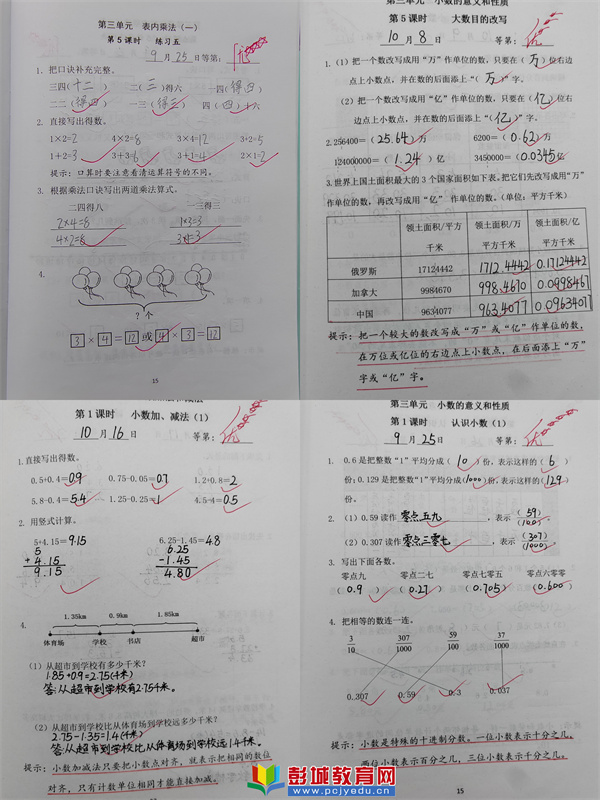 第三单元 表内乘法（一）
第5课时 练习五
9月25日等第：优
1. 把口诀补充完整。
三四（十二） 二（三）得六 一四（得四）
二二（得四） 一（得三）三 四（四）十六
2. 直接写出得数。
1×2=2 4×2=8 3×4=12 3+2=5
1+2=3 3+3=6 3+1=4 2×1=2
提示：口算时要注意看清运算符号的不同。
3. 根据乘法口诀写出两道乘法算式。
二四得八 一三得三
2×4=8 1×3=3
4×2=8 3×1=3
4.
?个
3×4=12或4×3=12
15
第三单元 小数的意义和性质
第5课时 大数目的改写
10月8日 等第：优
1.（1）把一个数改写成用“万”作单位的数，只要在（万）位右边
点上小数点，并在数的后面添上“（万）”字。
（2）把一个数改写成用“亿”作单位的数，只要在（亿）位右
边点上小数点，并在数的后面添上“（亿）”字。
2.256400=（25.64）万 6200=（0.62）万
124000000=（1.24）亿 3450000=（0.0345）亿
3.世界上国土面积最大的3个国家面积如下表。把它们先改写成用“万”
作单位的数，再改写成用“亿” 作单位的数。（单位：平方千米）
领土面积/平方千米 领土面积/万平方千米 领土面积/亿平方千米
俄罗斯 17124442 1712.4442 0.17124442
加拿大 9984670 998.4670 0.0998467
中国 9634077 963.4077 0.09634077
提示：把一个较大的数改写成“万”或“亿”作单位的数，
在万位或亿位的右边点上小数点，在后面添上“万”
字或“亿”字。
第1课时 小数加、减法（1）
10月16日 等第：优
1.直接写出得数。
0.5+0.4=0.9 0.75-0.05=0.7 1.2+0.8=2
5.8-0.4=5.4 1.25-0.25=1 4.5-4=0.5
2. 用竖式计算。
5+4.15=9.15 6.25-1.45=4.8
5 6.25
+4.15 -1.45
9.15 4.80
4.
1.35km 0.9km 1.85km
体育场 学校 书店 超市
（1）从超市到学校有多少千米？
1.85+0.9=2.75(千米)
答:从超市到学校有2.75千米。
（2）从超市到学校比从体育场到学校远多少千米？
2.75-1.35=1.4(千米)
答:从超市到学校比从体育场到学校远1.4千米。
提示：小数加减法只要把小数点对齐，就表示把相同的数位
对齐，只有计数单位相同才能直接加减。
第三单元 小数的意义和性质
第1课时 认识小数（1）
9月25日 等第：优
1. 0.6是把整数“1”平均分成（10）份，表示这样的（6）
份；0.129是把整数“1”平均分成（1000）份，表示这样的（129）
份。
2. （1）0.59读作 零点五九，表示（59）/（100）。
（2）0.307读作 零点三零七，表示（307）/（1000）。
3. 写出下面各数。
零点九 零点二七 零点七零五 零点六零零
（0.9） （0.27） （0.705） （0.600）
4. 把相等的数连一连。
3/10 307/1000 59/100 37/1000
0.307 0.59 0.3 0.037
提示：小数是特殊的十进制分数。一位小数表示十分之几，
两位小数表示百分之几，三位小数表示千分之几。
15
彭城教育网
www.pcjyedu.cn